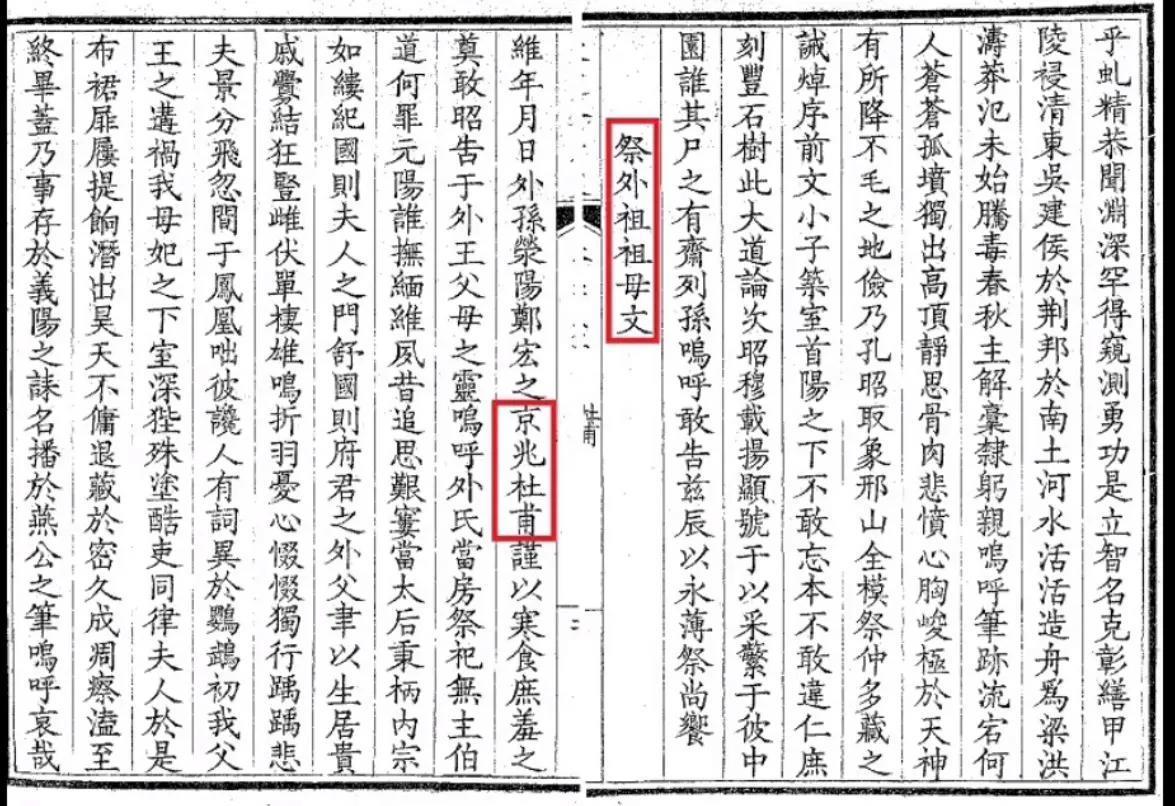 乎虬精恭聞淵深罕得窺測勇功是立智名克彰繕甲江
陵祲清東吳建侯於荆邦於南土河水活活造舟爲梁洪
濤莽汜未始騰毒春秋主解稾隸躬親嗚呼筆跡流宕何
人蒼蒼孤墳獨出高頂靜思骨肉悲憤心胸峻極於天神
有所降不毛之地儉乃孔昭取象邢山全模祭仲多藏之
誡焯序前文小子築室首陽之下不敢忘本不敢違仁庶
刻豐石樹此大道論次昭穆載揚顯號于以采蘩于彼中
園誰其尸之有齋列孫嗚呼敢告茲辰以永薄祭尚饗
祭外祖祖母文
杜甫
維年月日外孫滎陽鄭宏之京兆杜甫謹以寒食庶羞之
奠敢昭告于外王父母之靈嗚呼外氏當房祭祀無主伯
道何罪元陽誰撫緬維夙昔追思艱窶當太后秉柄内宗
如縷紀國則夫人之門舒國則府君之外父聿以生居貴
戚釁結狂豎雌伏單棲雄鳴折羽憂心惙惙獨行踽踽悲
夫景分飛忽間于鳳凰咄彼讒人有詞異於鸚鵡初我父
王之遘禍我母妃之下室深狴殊塗酷吏同律夫人於是
布裙屝屨提餉潛出昊天不傭退藏於密久成凋瘵溘至
終畢蓋乃事存於義陽之誄名播於燕公之筆嗚呼哀哉